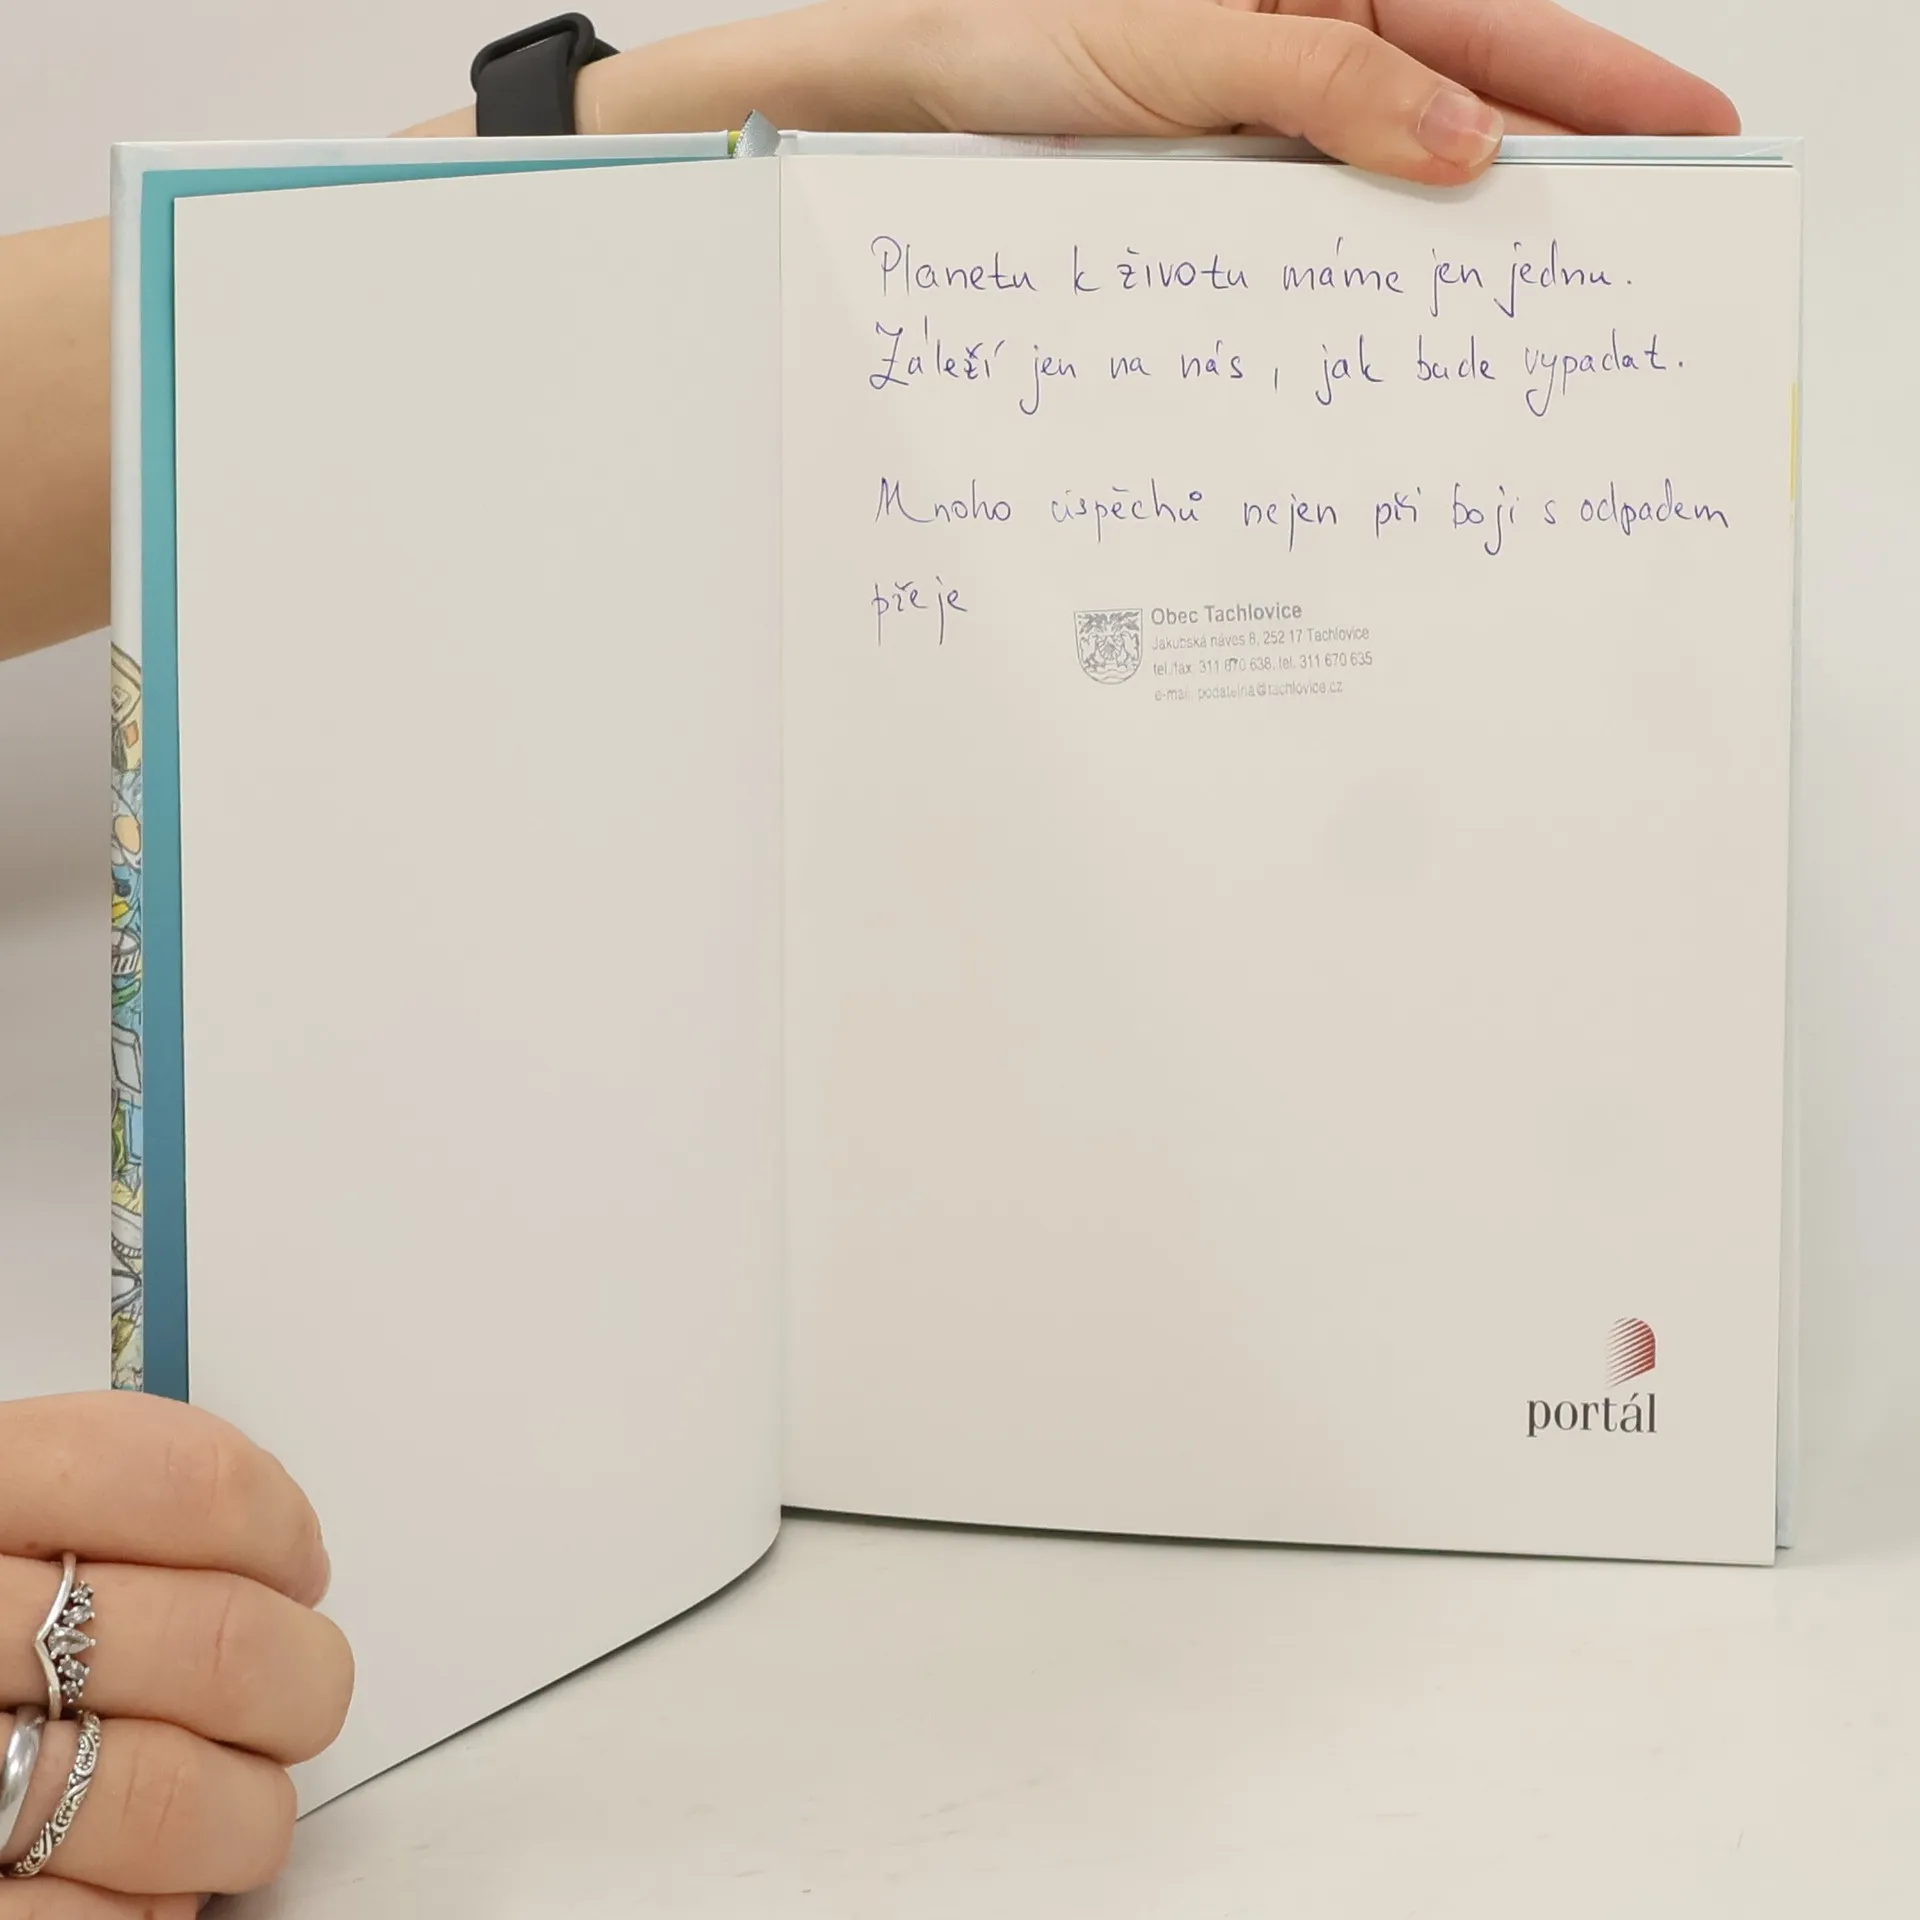 Planetu k životu máme jen jednu.
Záleží jen na nás, jak bude vypadat.
Mnoho úspěchů nejen při boji s odpadem
přeje
Obec Tachlovice
Jakubská náves 8, 252 17 Tachlovice
tel./fax: 311 670 638, tel. 311 670 635
e-mail: podatelna@tachlovice.cz
portál